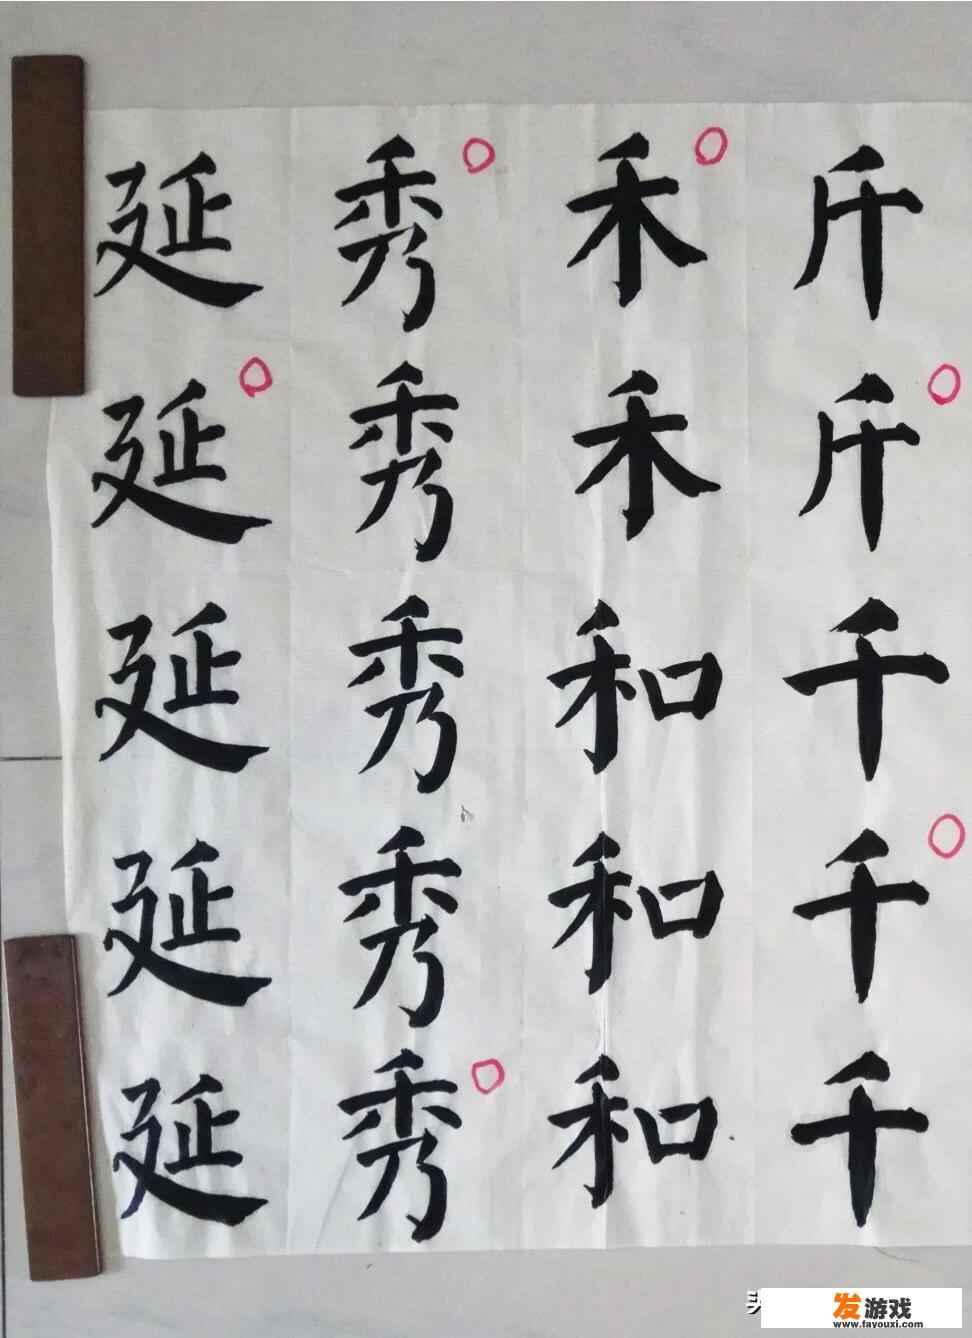 斤斤千千千
禾禾和和和
秀秀秀秀秀
延延延延延
发游戏
www.fayouxi.com